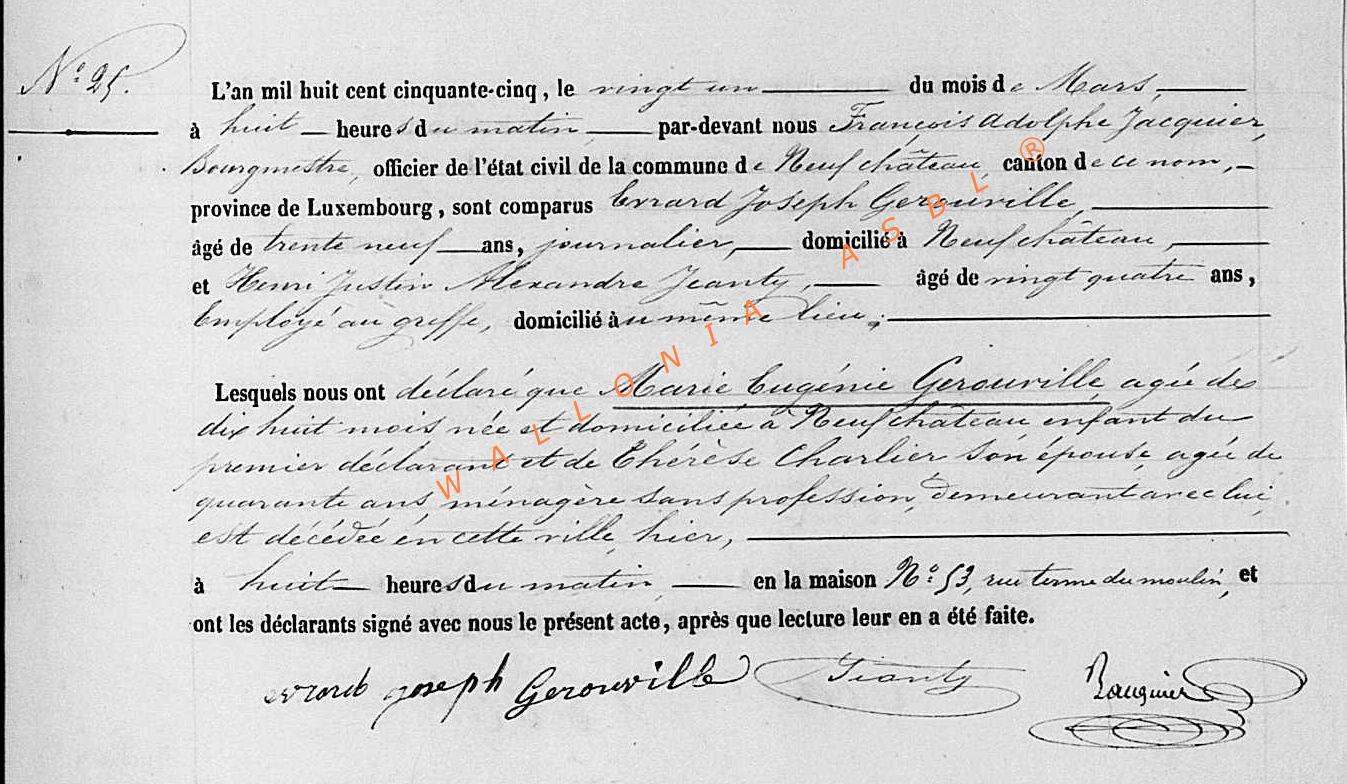 N° 25.
L'an mil huit cent cinquante-cinq, le vingt un du mois de Mars,
à huit heures du matin, par-devant nous François Adolphe Jacquier,
Bourgmestre, officier de l'état civil de la commune de Neufchâteau, canton de ce nom,
province de Luxembourg, sont comparus Evrard Joseph Gerouville,
âgé de trente neuf ans, journalier, domicilié à Neufchâteau,
et Henri Justin Alexandre Jeanty, âgé de vingt quatre ans,
Employé au greffe, domicilié au même lieu;
Lesquels nous ont déclaré que Marie Eugénie Gerouville, agée de
dix huit mois née et domiciliée à Neufchâteau enfant du
premier déclarant et de Thérèse Charlier son épouse, agée de
quarante ans, ménagère sans profession, demeurant avec lui,
est décédée en cette ville, hier,
à huit heures du matin, en la maison N° 53, rue terme du moulin, et
ont les déclarants signé avec nous le présent acte, après que lecture leur en a été faite.
evrard joseph Gerouville Jeanty
WALLONIA ASBL ®